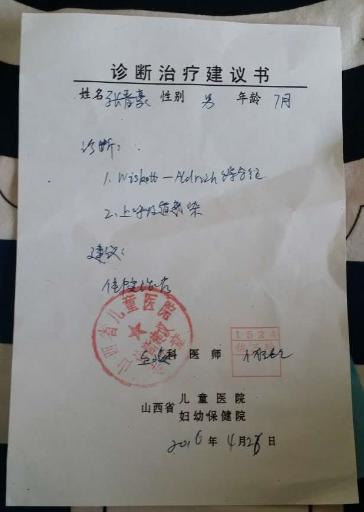 诊断治疗建议书
姓名 张睿豪 性别 男 年龄 7月
诊断:
1. Wiskott-Aldrich综合征
2. 上呼吸道感染
建议:
住院治疗
山西省儿童医院
科医师
1524
山西省 儿童医院
妇幼保健院
2016年4月28日